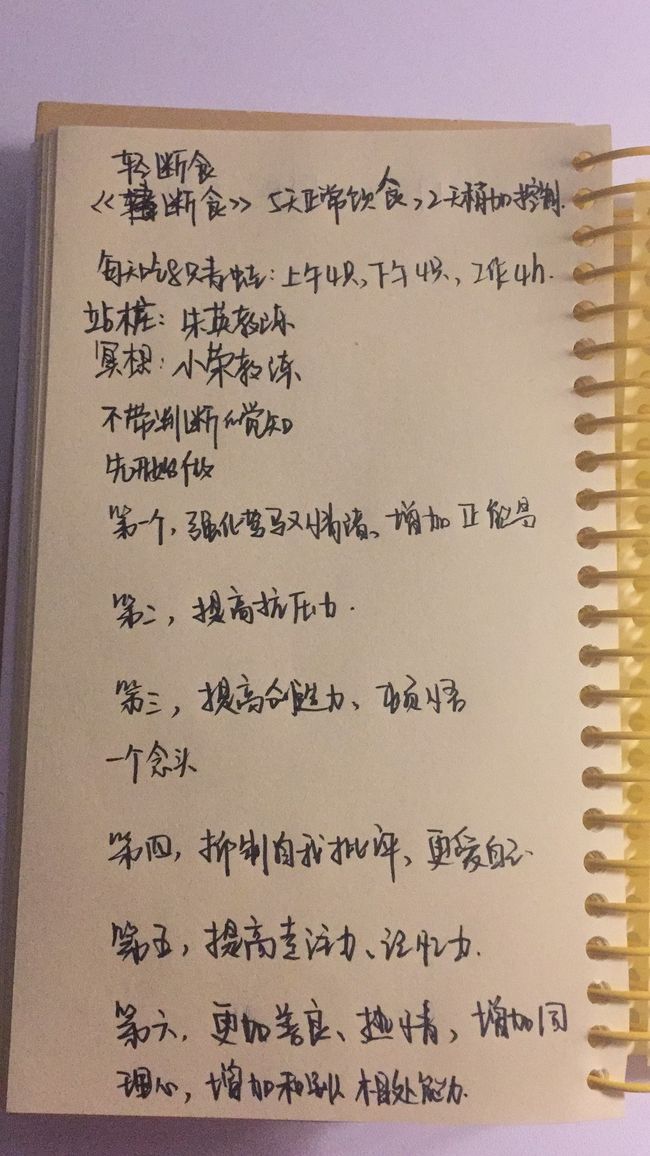 轻断食
《轻断食》 5天正常饮食,2天稍加控制.
每天吃8只青蛙:上午4只,下午4只,工作4h.
站桩:朱英教练
冥想:小荣教练
不带判断的觉知
先开始做
第一个,强化驾驭情绪、增加正能量
第二,提高抗压力.
第三,提高创造力、顿悟
一个念头
第四,抑制自我批评、更爱自己
第五,提高专注力、记忆力.
第六,更加善良、热情,增加同
理心,增加和别人相处能力.